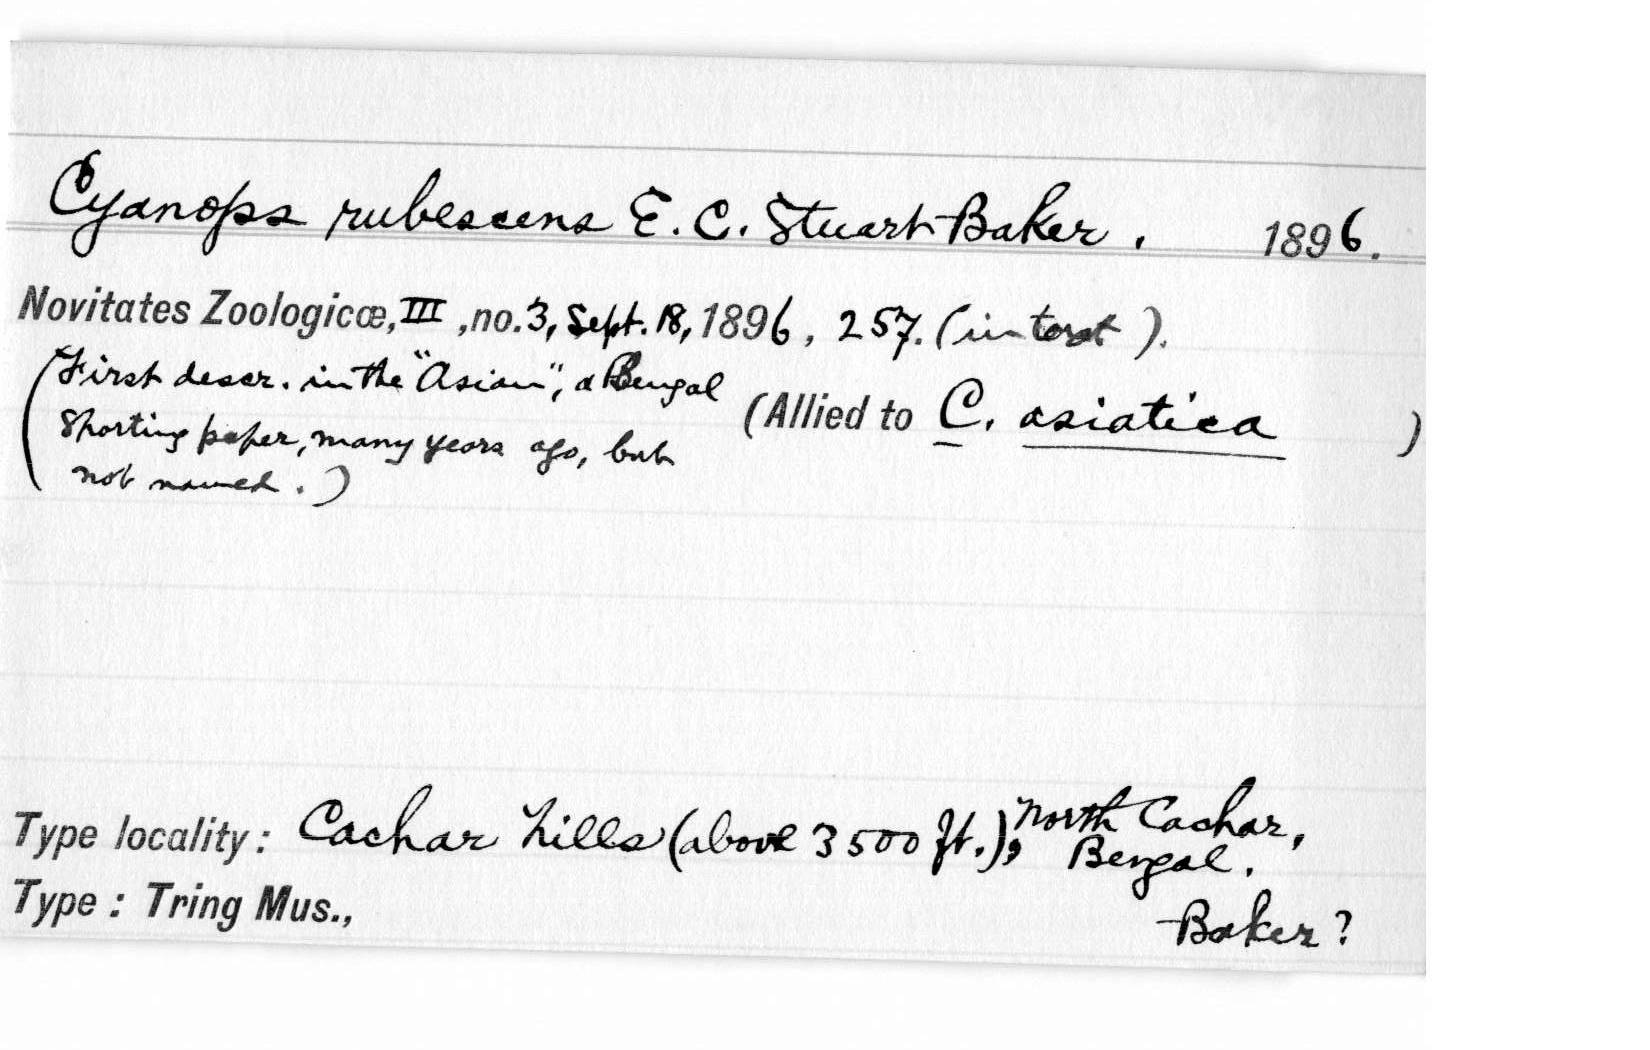 Cyanops rubescens E. C. Stuart Baker. 1896.
Novitates Zoologicæ, III, no. 3, Sept. 18, 1896, 257. (in text).
(First descr. in the "Asian", a Bengal
Sporting paper, many years ago, but
not named.)
(Allied to C. asiatica )
Type locality: Cachar hills (above 3500 ft.), North Cachar,
Bengal.
Type: Tring Mus.,
Baker?